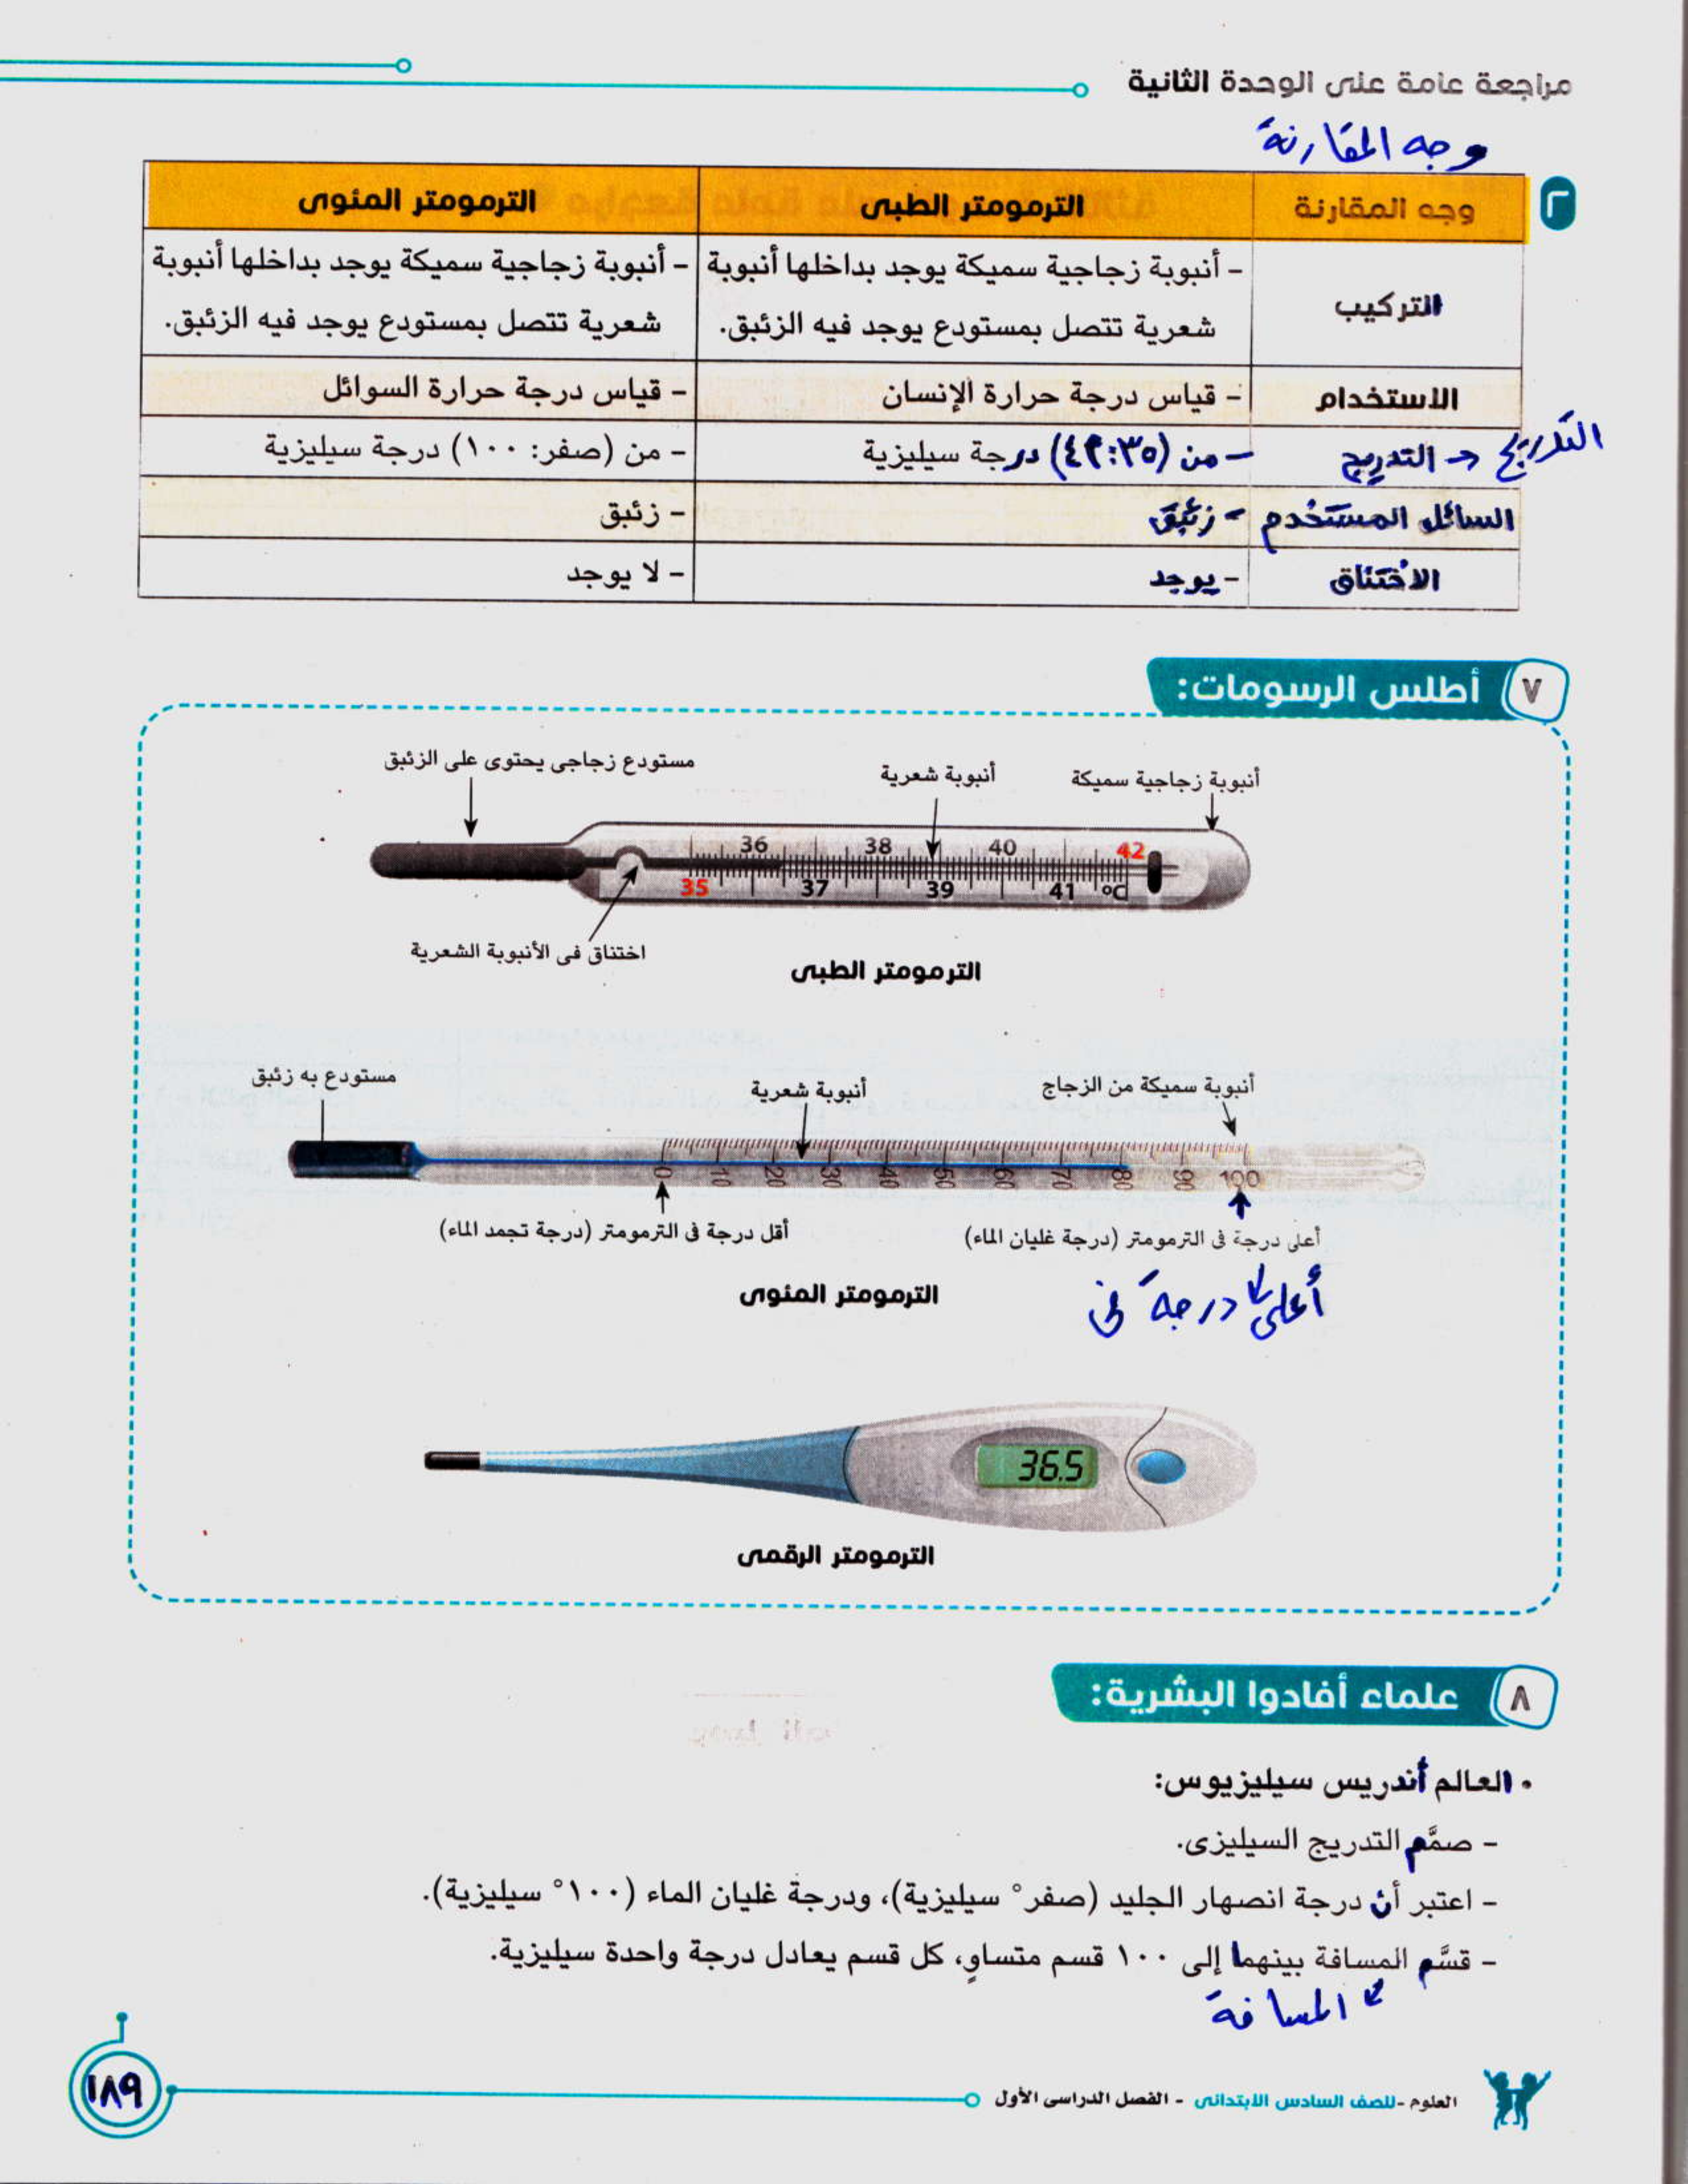 مراجعة عامة على الوحدة الثانية
وجه المقارنة
٢
وجه المقارنة
الترمومتر الطبى
الترمومتر المئوى
التركيب
- أنبوبة زجاجية سميكة يوجد بداخلها أنبوبة
شعرية تتصل بمستودع يوجد فيه الزئبق.
- أنبوبة زجاجية سميكة يوجد بداخلها أنبوبة
شعرية تتصل بمستودع يوجد فيه الزئبق.
الاستخدام
- قياس درجة حرارة الإنسان
- قياس درجة حرارة السوائل
التدريج
التدريج
- من (٣٥:٤٢) درجة سيليزية
- من (صفر: ١٠٠) درجة سيليزية
السائل المستخدم
- زئبق
- زئبق
الاختناق
- يوجد
- لا يوجد
٧ أطلس الرسومات:
مستودع زجاجى يحتوى على الزئبق
أنبوبة شعرية
أنبوبة زجاجية سميكة
36 38 40 42
35 37 39 41 °C
اختناق فى الأنبوبة الشعرية
الترمومتر الطبى
مستودع به زئبق
أنبوبة شعرية
أنبوبة سميكة من الزجاج
0 10 20 30 40 50 60 70 80 90 100
أقل درجة فى الترمومتر (درجة تجمد الماء)
أعلى درجة فى الترمومتر (درجة غليان الماء)
أعلى درجة فى
الترمومتر المئوى
36.5
الترمومتر الرقمى
٨ علماء أفادوا البشرية:
• العالم أندريس سيليزيوس:
- صمَّم التدريج السيليزى.
- اعتبر أن درجة انصهار الجليد (صفر° سيليزية)، ودرجة غليان الماء (١٠٠° سيليزية).
- قسَّم المسافة بينهما إلى ١٠٠ قسم متساوٍ، كل قسم يعادل درجة واحدة سيليزية.
المسافة
العلوم -للصف السادس الابتدائى - الفصل الدراسى الأول
١٨٩